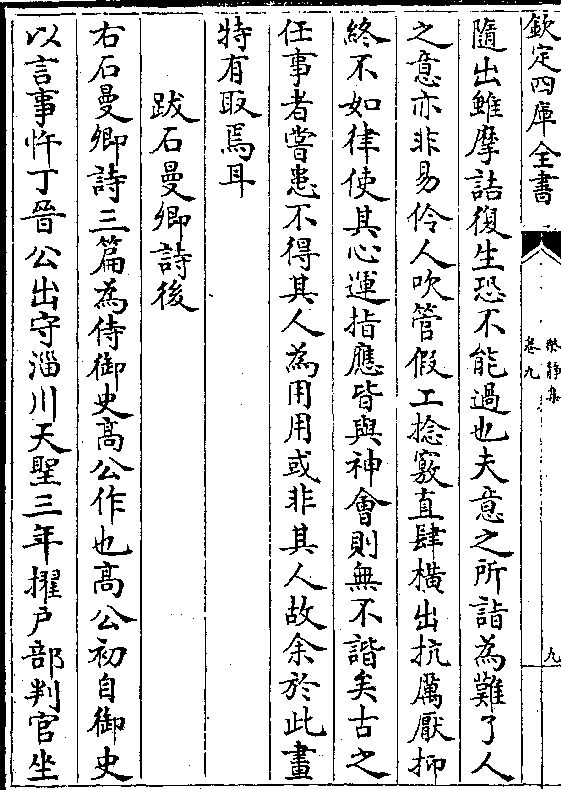 欽定四庫全書
樂靜集
卷九
九
隨出雖摩詰復生恐不能過也夫意之所詣為難了人
之意亦非易伶人吹管假工捻竅直肆橫出抗厲厭抑
終不如律使其心運指應皆與神會則無不諧矣古之
任事者嘗患不得其人為用用或非其人故余於此畫
特有取焉耳
跋石曼卿詩後
右石曼卿詩三篇為侍御史高公作也高公初自御史
以言事忤丁晉公出守淄川天聖三年擢户部判官坐